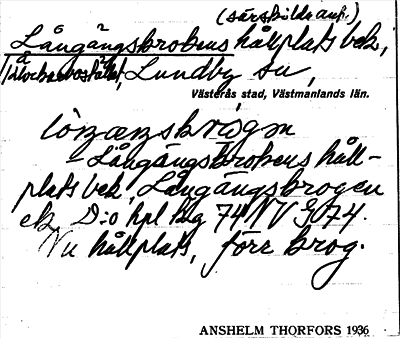 (särskilda ant.)
Långängskrokens hållplats bek,
Lundby sn,
Västerås stad, Västmanlands län.
lòŋæŋskrògɳ
- Långängskrokens håll-
plats bek, Långängskrogen
ek. D:o hpl big 74 NV G 074.
Nu hållplats, förr krog.
ANSHELM THORFORS 1936